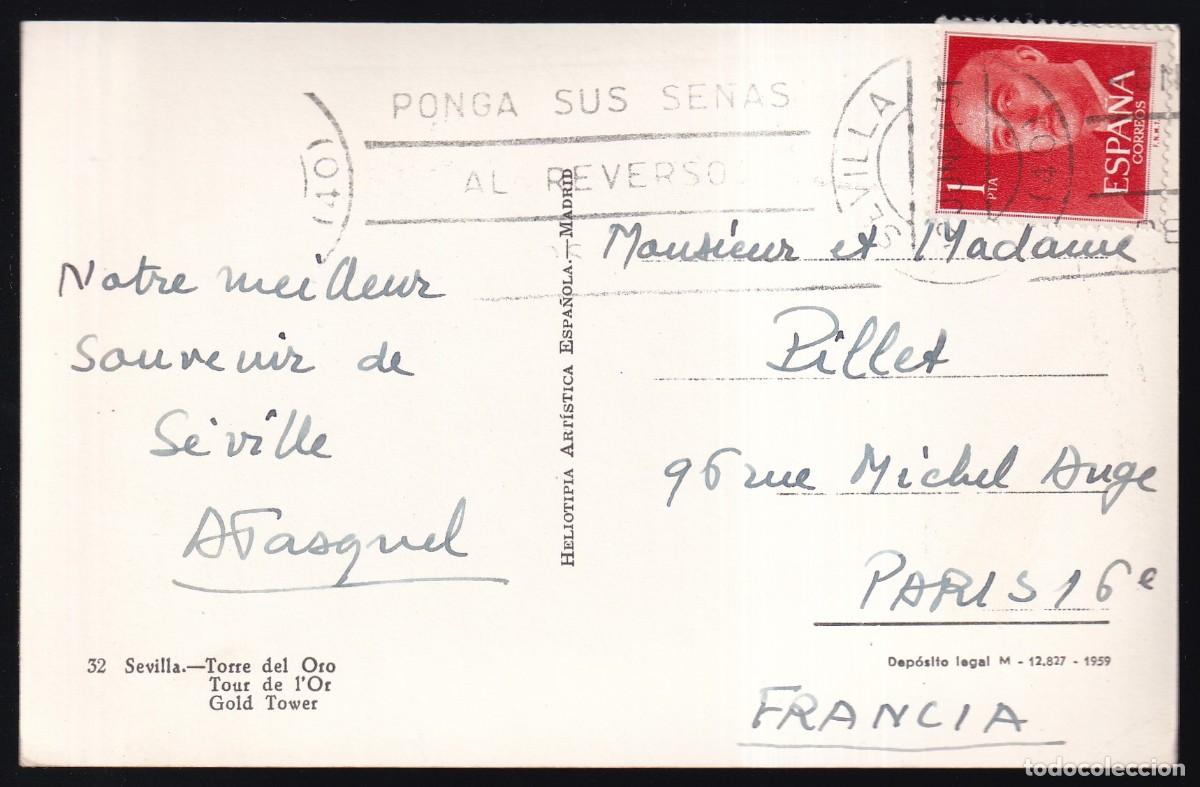 PONGA SUS SEÑAS
AL REVERSO
(40)
SEVILLA
(40)
1
PTA
ESPAÑA
CORREOS
F.N.M.T.
Notre meilleur
souvenir de
Séville
HELIOTIPIA ARTÍSTICA ESPAÑOLA.—MADRID
Monsieur et Madame
Pillet
96 rue Michel Ange
PARIS 16e
FRANCIA
32 Sevilla.—Torre del Oro
Tour de l'Or
Gold Tower
Depósito legal M - 12.827 - 1959
todocoleccion